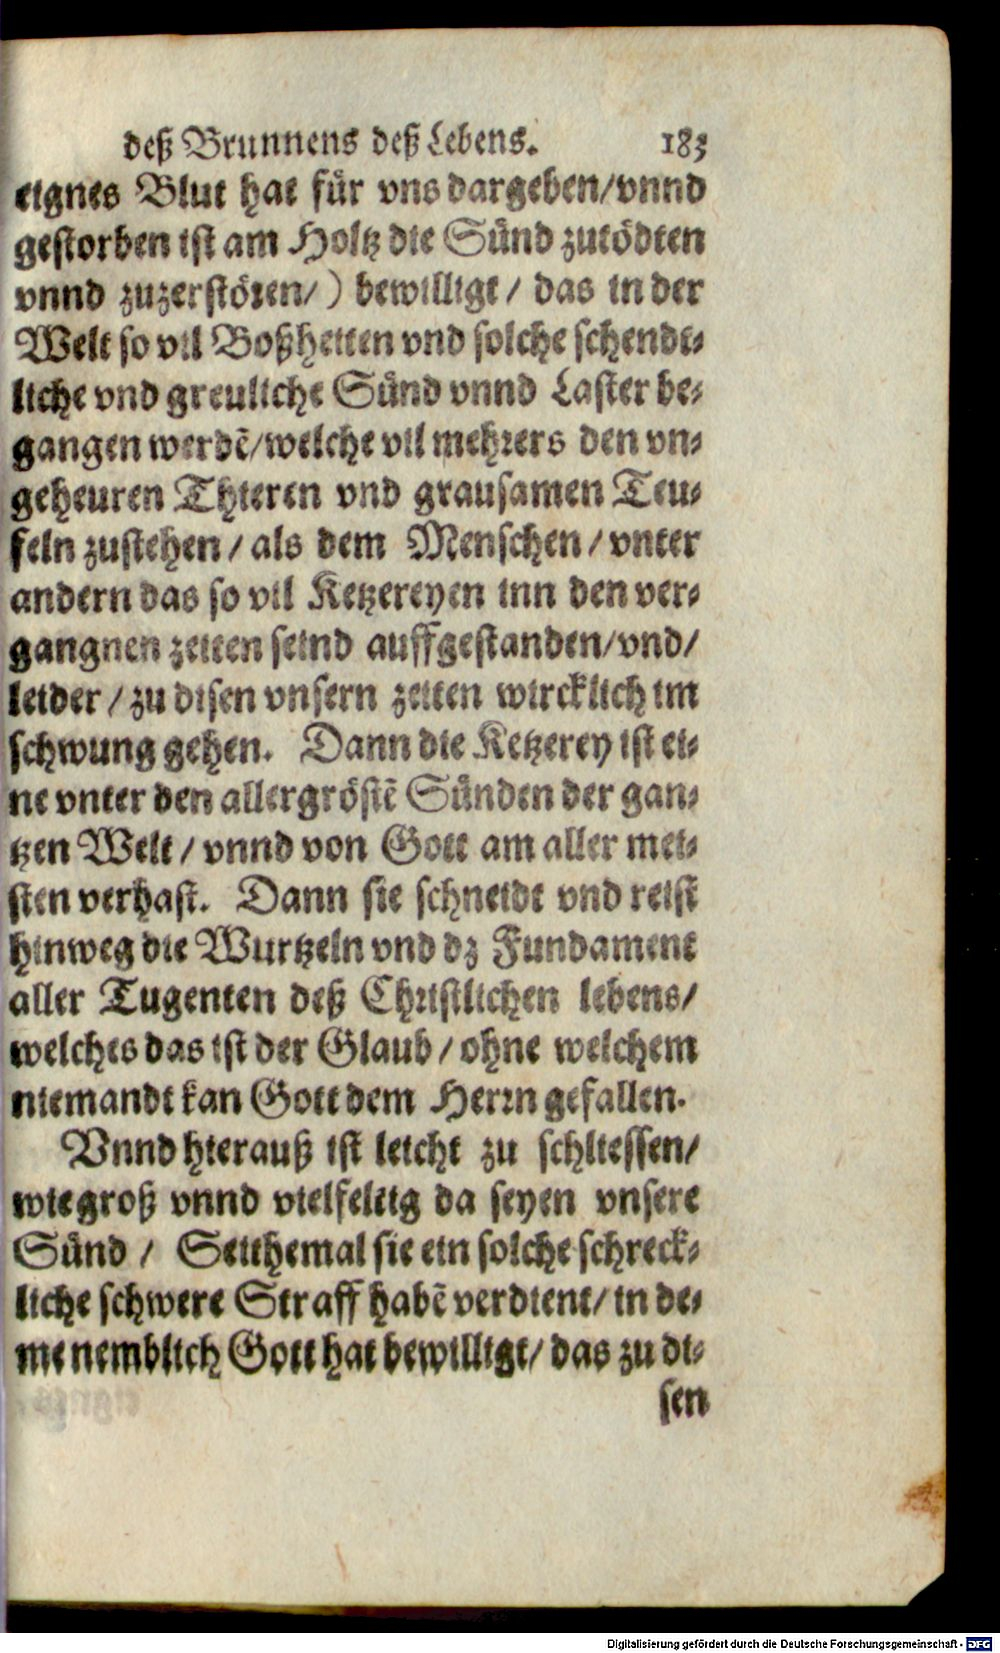 deß Brunnens deß Lebens. 183
eignes Blut hat für vns dargeben/vnnd
gestorben ist am Holtz die Sünd zutödten
vnnd zuzerstören/) bewilligt / das in der
Welt so vil Boßheiten vnd solche schendt-
liche vnd greuliche Sünd vnnd Laster be-
gangen werdē/welche vil mehrers den vn-
geheuren Thieren vnd grausamen Teu-
feln zustehen / als dem Menschen / vnter
andern das so vil Ketzereyen inn den ver-
gangnen zeiten seind auffgestanden/vnd/
leider / zu disen vnsern zeiten wircklich im
schwung gehen. Dann die Ketzerey ist ei-
ne vnter den allergröstē Sünden der gan-
tzen Welt / vnnd von Gott am aller mei-
sten verhast. Dann sie schneidt vnd reist
hinweg die Wurtzeln vnd dz Fundament
aller Tugenten deß Christlichen lebens/
welches das ist der Glaub / ohne welchem
niemandt kan Gott dem Herrn gefallen.
Vnnd hierauß ist leicht zu schliessen/
wie groß vnnd vielfeltig da seyen vnsere
Sünd / Seithemal sie ein solche schreck-
liche schwere Straff habē verdient/ in de-
me nemblich Gott hat bewilligt/ das zu di-
sen
Digitalisierung gefördert durch die Deutsche Forschungsgemeinschaft - DFG